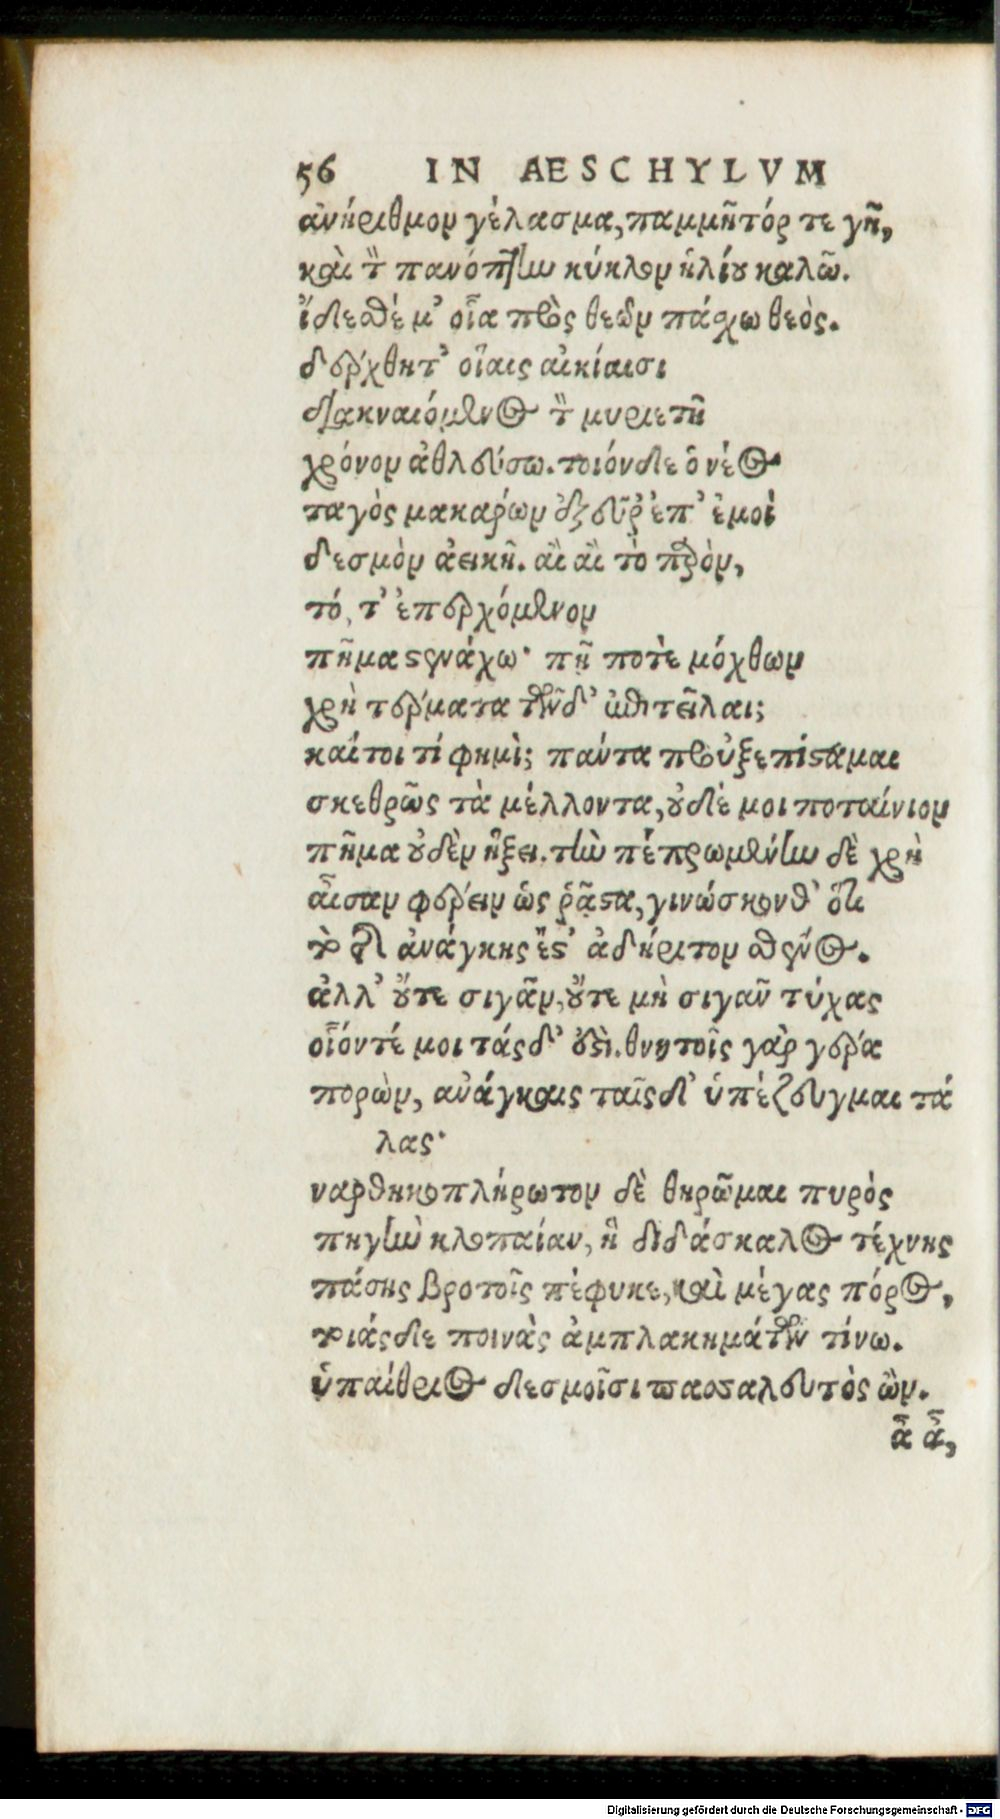 56 IN AESCHYLVM
ἀνήριθμον γέλασμα, παμμῆτόρ τε γῆ,
καὶ τὸν πανόπτην κύκλον ἡλίου καλῶ.
ἴδεσθέ μ' οἷα πρὸς θεῶν πάσχω θεὸς.
δέρχθητ' οἵαις αἰκίαισι
διακναιόμενος τὸν μυριετῆ
χρόνον ἀθλεύσω. τοιόνδε ὁ νέος
ταγὸς μακάρων ἐξεῦρ' ἐπ' ἐμοὶ
δεσμὸν ἀεικῆ. αἲ αἲ τὸ παρὸν,
τό, τ' ἐπερχόμενον
πῆμα στενάχω· πῆ ποτὲ μόχθων
χρὴ τέρματα τῶνδ' ἐπιτεῖλαι;
καίτοι τί φημὶ; πάντα προὐξεπίσταμαι
σκεθρῶς τὰ μέλλοντα, οὐδέ μοι ποταίνιον
πῆμα οὐδὲν ἥξει. τὴν πεπρωμένην δὲ χρὴ
αἶσαν φέρειν ὡς ῥᾷστα, γινώσκονθ' ὅτι
τὸ τῆς ἀνάγκης ἔστ' ἀδήριτον σθένος.
ἀλλ' οὔτε σιγᾶν, οὔτε μὴ σιγᾶν τύχας
οἷόντέ μοι τάςδ' ἐστὶ. θνητοῖς γὰρ γέρα
πορὼν, ἀνάγκαις ταῖςδ' ὑπέζευγμαι τά
λας·
ναρθηκοπλήρωτον δὲ θηρῶμαι πυρὸς
πηγὴν κλοπαίαν, ἣ διδάσκαλος τέχνης
πάσης βροτοῖς πέφυκε, καὶ μέγας πόρος,
τοιάςδε ποινὰς ἀμπλακημάτων τίνω.
ὑπαίθριος δεσμοῖσι πασσαλευτὸς ὢν.
ἆ ἆ,
Digitalisierung gefördert durch die Deutsche Forschungsgemeinschaft - DFG